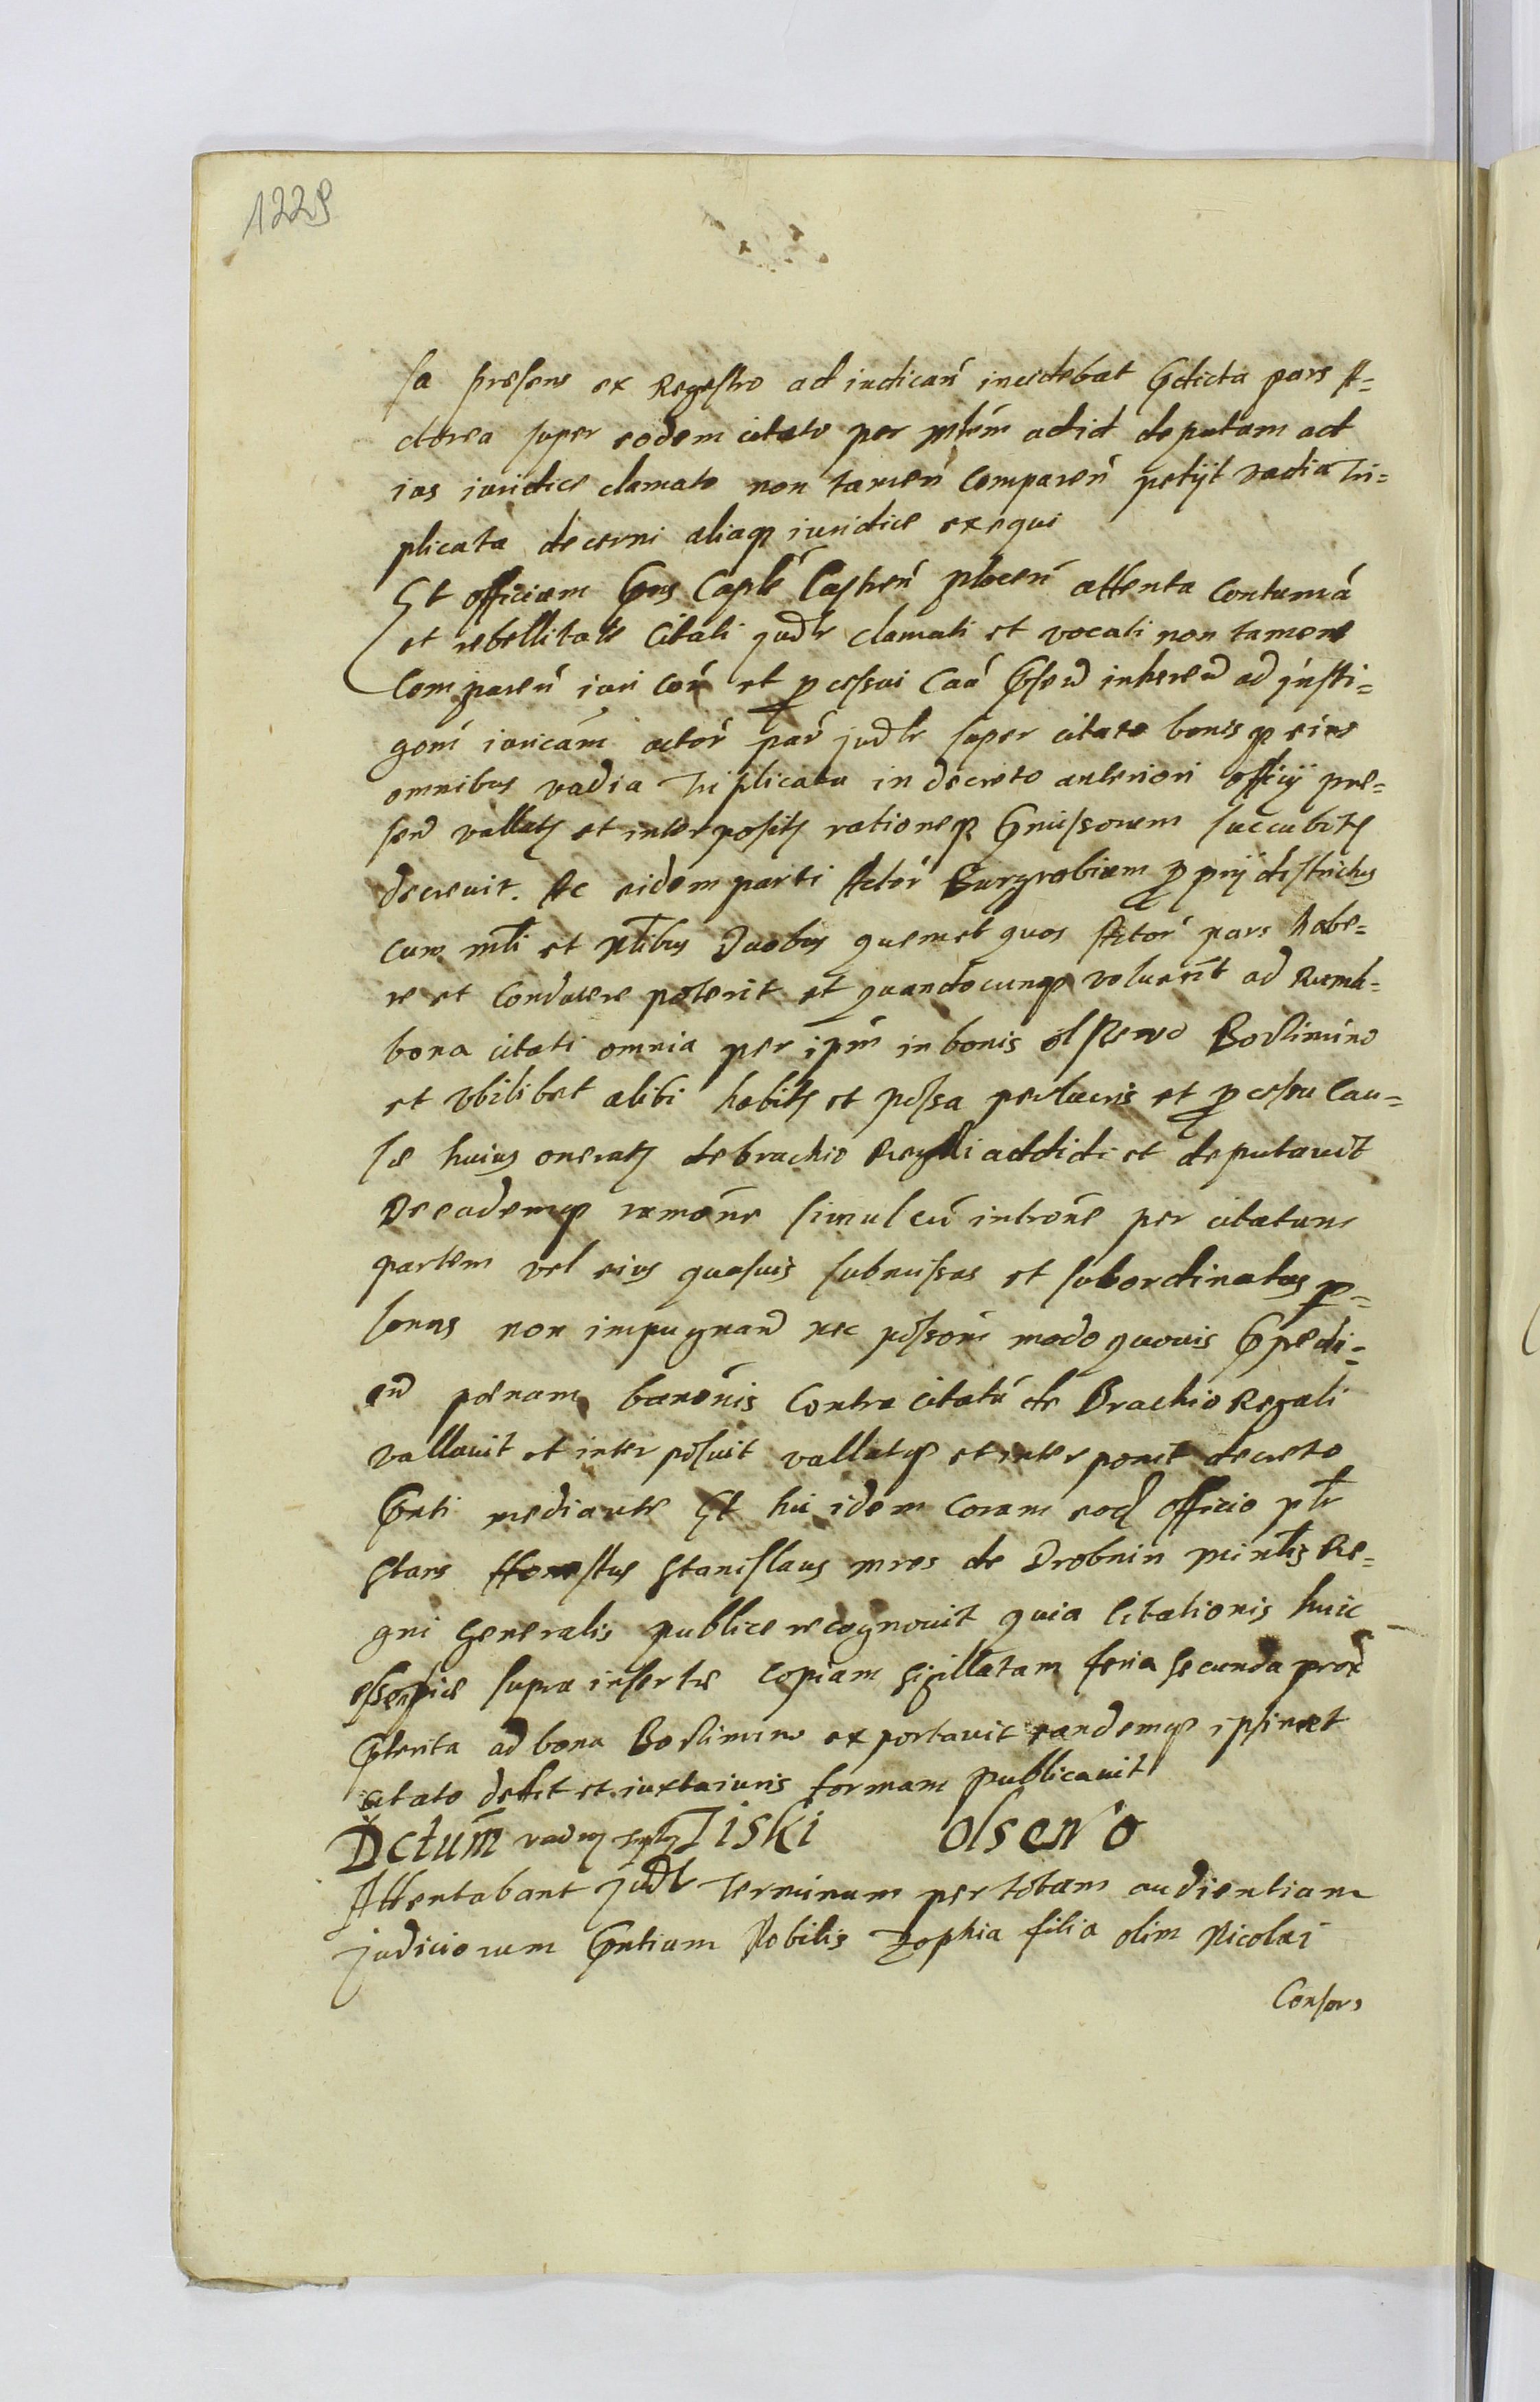 1229
sa presens ex Regestro ad iudicań incidebat Pdicta pars A=
ctorea super eodem citato per mlem ad id deputam ad
ias iuridice clamato non tamen Comparen petijt vadia Tri=
plicata decerni aliaq iuridice exequi
Et officium Pns Caple Castren plocen attenta Contumá
et rebellitate Citati judlr clamati et vocati non tamen
Comparen iuri Con et pcessui Caa Psen inheren ad insti=
gom iuricam actor par judlr super citato bonisq eius
omnibus vadia Triplicata in decreto anteriori officij pre=
sen vallatȝ et interpositȝ rationeq Pmissorum succubitȝ
decrevit. Ac eidem parti Actor Burgrabium pprij districtus
cum mli et nlibus Duobus quem et quos Actor pars habe=
re et Conducere poterit et quandocunq voluerit ad Rumá=
bona citati omnia per ipm in bonis olszewo Bodlimino
et vbilibet alibi habitȝ et possa perlucris et pcessu Cau=
sæ huius oneratȝ de brachio Regali addidi et deputavit
Deeademq rumone simul cu introne per citatum
partem vel eius quasuis submissas et subordinatas p=
sonas non impugnand nec possom modo quovis Ppedi=
end pænam banonis Contra citatu de Brachio Regali
vallavit et interposuit vallatq et interponit decreto
Pnti mediante Et hic idem Coram eod officio plr
Stans Honestus Stanislaus mros de Drobnin minlis Re=
gni Generalis publice recognovit quia Citationis huic
supra insertæ Copiam sigillatam feria secunda prox
Pterita ad bona Bodlimino exportavit eandemq ipsimet
citato dedit et iuxta iuris formam publicavit
Dctum vadiȝ Tiski olsewo
Attentabant judlr Terminum per totam audientiam
judiciorum Pntium Nobilis Zophia filia olim Nicolai
Consors